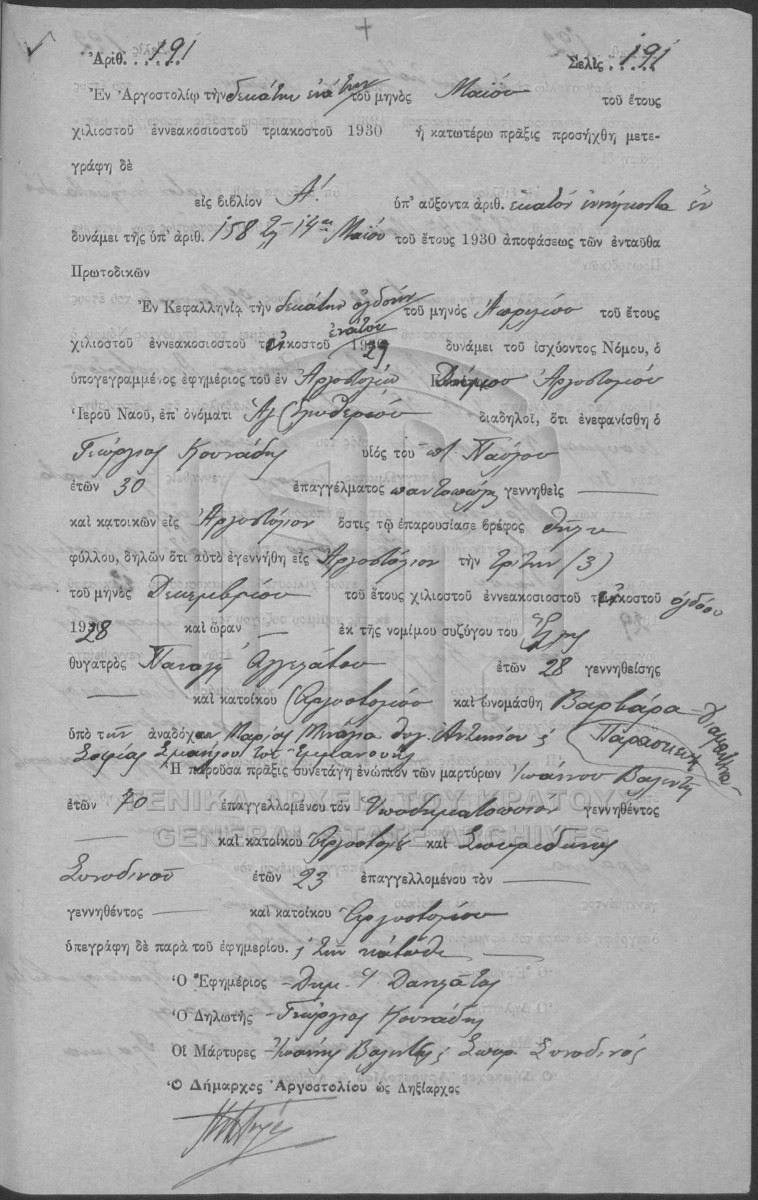 Ἀριθ. 191 Σελὶς 191
Ἐν Ἀργοστολίῳ τὴν δεκάτην ἐνάτην τοῦ μηνὸς Μαΐου τοῦ ἔτους
χιλιοστοῦ ἐννεακοσιοστοῦ τριακοστοῦ 1930 ἡ κατωτέρω πρᾶξις προσήχθη μετε-
γράφη δὲ
εἰς βιβλίον Α! ὑπ' αὔξοντα ἀριθ. ἑκατὸν ἐννήκοντα ἓν
δυνάμει τῆς ὑπ' ἀριθ. 158 14 Μαΐου τοῦ ἔτους 1930 ἀποφάσεως τῶν ἐνταῦθα
Πρωτοδικῶν
Ἐν Κεφαλληνίᾳ τὴν δεκάτην ὀγδόην τοῦ μηνὸς Ἀπριλίου τοῦ ἔτους
χιλιοστοῦ ἐννεακοσιοστοῦ εἰκοστοῦ ἐνάτου 1929 δυνάμει τοῦ ἰσχύοντος Νόμου, ὁ
ὑπογεγραμμένος ἐφημέριος τοῦ ἐν Ἀργοστολίῳ Δήμου Ἀργοστολίου
Ἱεροῦ Ναοῦ, ἐπ' ὀνόματι Ἁγ Ἐλευθερίου διαδηλοῖ, ὅτι ἐνεφανίσθη ὁ
Γεώργιος Κουνάδης υἱὸς τοῦ π. Παύλου
ἐτῶν 30 ἐπαγγέλματος παντοπώλης γεννηθεὶς —
καὶ κατοικῶν εἰς Ἀργοστόλιον ὅστις τῷ ἐπαρουσίασε βρέφος θήλεος
φύλλου, δηλῶν ὅτι αὐτὸ ἐγεννήθη εἰς Ἀργοστόλιον τὴν τρίτην (3)
τοῦ μηνὸς Δεκεμβρίου τοῦ ἔτους χιλιοστοῦ ἐννεακοσιοστοῦ εἰκοστοῦ ὀγδόου
1928 καὶ ὥραν — ἐκ τῆς νομίμου συζύγου του
θυγατρὸς Παναγῆ Ἀγγελάτου ἐτῶν 28 γεννηθείσης
— καὶ κατοίκου Ἀργοστολίου καὶ ὠνομάσθη Βαρβάρα - Διαμαντίνα -
ὑπὸ τῶν ἀναδόχων Μαρίας θυγ. Ἀντωνίου & Παρασκευὴ
Σοφίας τοῦ Ἐμμανουὴλ
Ἡ παροῦσα πρᾶξις συνετάγη ἐνώπιον τῶν μαρτύρων Ἰωάννου Βαλεντῆ
ἐτῶν 70 ἐπαγγελλομένου τὸν Ὑποδηματοποιὸν γεννηθέντος
ΓΕΝΙΚΑ ΑΡΧΕΙΑ ΤΟΥ ΚΡΑΤΟΥΣ
GENERAL STATE ARCHIVES
— καὶ κατοίκου Ἀργοστολίου καὶ Σπυρίδωνος
Συνοδινοῦ ἐτῶν 23 ἐπαγγελλομένου τὸν —
γεννηθέντος — καὶ κατοίκου Ἀργοστολίου
ὑπεγράφη δὲ παρὰ τοῦ ἐφημερίου. & τῶν κάτωθι —
Ὁ Ἐφημέριος - Δημ. Δαυγάτος
Ὁ Δηλωτὴς - Γεώργιος Κουνάδης
Οἱ Μάρτυρες - Ἰωάννης Βαλεντῆς & Σπυρ Συνοδινός
Ὁ Δήμαρχος Ἀργοστολίου ὡς Ληξίαρχος